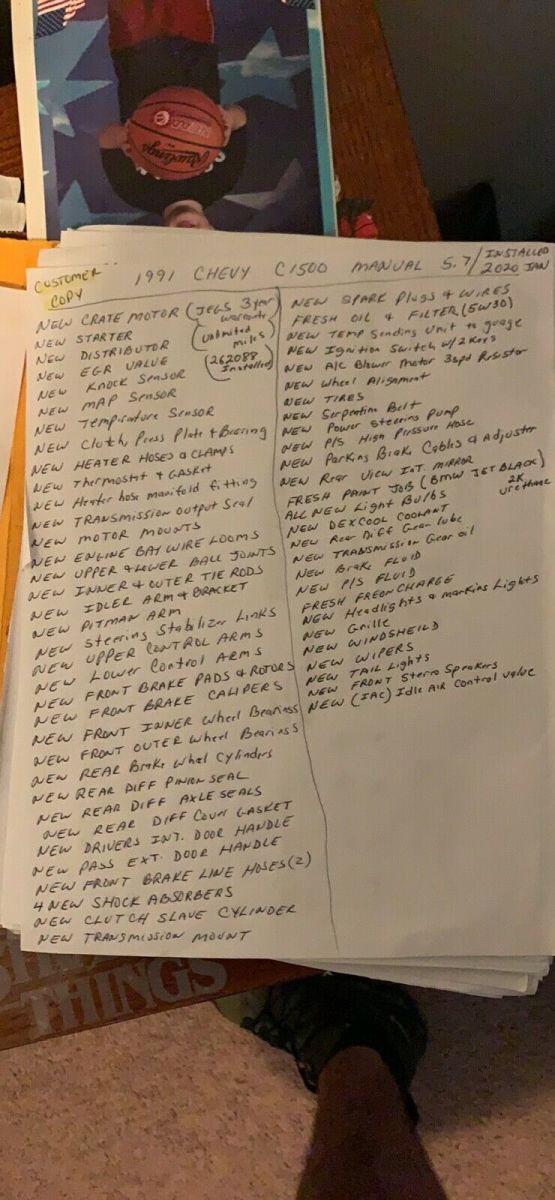 Rawlings
CUSTOMER
COPY
1991 CHEVY C1500 MANUAL 5.7/ INSTALLED
2020 JAN
NEW CRATE MOTOR (JEGS 3 year
warranty
unlimited
miles)
(262088
Installed)
NEW STARTER
NEW DISTRIBUTOR
NEW EGR VALVE
NEW KNOCK SENSOR
NEW MAP SENSOR
NEW TEMPIRATURE SENSOR
NEW Clutch Press Plate & Bearing
NEW HEATER HOSES & CLAMPS
NEW Thermostat & GASKet
NEW Heater hose manifold fitting
NEW TRANSMISSION OUTPUT SEAL
NEW MOTOR MOUNTS
NEW ENGINE BAY WIRE LOOMS
NEW UPPER & LOWER BALL JOINTS
NEW INNER & OUTER TIE RODS
NEW IDLER ARM & BRACKET
NEW PITMAN ARM
NEW Steering Stabilizer Links
NEW UPPER CONTROL ARMS
NEW Lower Control ARMS
NEW FRONT BRAKE PADS & ROTORS
NEW FRONT BRAKE CALIPERS
NEW FRONT INNER Wheel Bearings
NEW FRONT OUTER Wheel Bearings
NEW REAR Brake Wheel Cylinders
NEW REAR DIFF PINION SEAL
NEW REAR DIFF AXLE SEALS
NEW REAR DIFF Cover GASKET
NEW DRIVERS INT. DOOR HANDLE
NEW PASS EXT. DOOR HANDLE
NEW FRONT BRAKE LINE HOSES (2)
4 NEW SHOCK ABSORBERS
NEW CLUTCH SLAVE CYLINDER
NEW TRANSMISSION MOUNT
NEW SPARK Plugs & WIRES
FRESH OIL & FILTER (5W30)
NEW TEMP Sending Unit to guage
NEW Ignition Switch w/ 2 Keys
NEW A/C Blower Motor 3spd Resistor
NEW Wheel Alignment
NEW TIRES
NEW Serpentine Belt
NEW Power Steering Pump
NEW P/S High Pressure Hose
NEW Parking Brake Cables & Adjuster
NEW Rear View INT. MIRROR
FRESH PAINT JOB (BMW JET BLACK)
2K
urethane
ALL NEW Light Bulbs
NEW DEXCOOL COOLANT
NEW Rear Diff Gear lube
NEW TRANSMISSION Gear oil
NEW Brake FLUID
NEW P/S FLUID
FRESH FREON CHARGE
NEW Headlights & marking Lights
NEW Grille
NEW WINDSHEILD
NEW WIPERS
NEW TAIL Lights
NEW FRONT Stereo Speakers
NEW (IAC) Idle AIR Control valve
THINGS